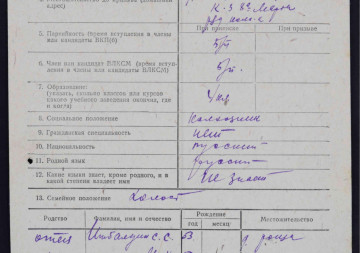 адрес)
К-3 8 Марта
При призыве
При призыве
5. Партийность (время вступления в члены
или кандидаты ВКП(б)
б/п
6. Член или кандидат ВЛКСМ (время вступ-
ления в члены или кандидаты ВЛКСМ)
б/п.
7. Образование:
(указать, сколько классов или курсов
какого учебного заведения окончил, где
и когда)
4 кл
8. Социальное положение
Колхозник
9. Гражданская специальность
нет
10. Национальность
русский
11. Родной язык
русский
12. Какие языки знает, кроме родного, и в
какой степени владеет ими
не знает
13. Семейное положение Холост
Родство
Фамилия, имя и отчество
Рождение
год
месяц
Местожительство
отец
С. С.
53